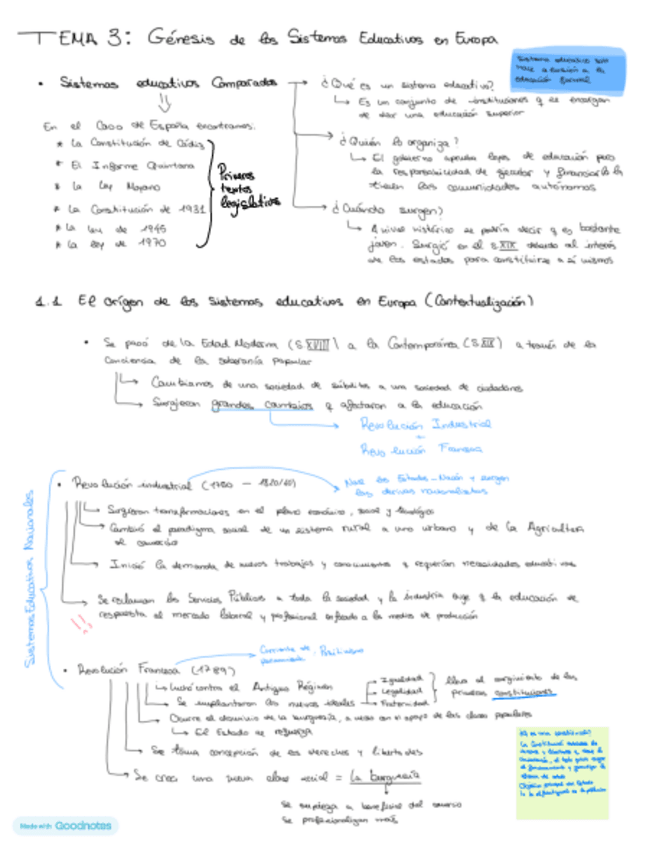 TEMA 3: Génesis de los Sistemas Educativos en Europa
Sistemas educativos Comparados
¿Qué es un sistema educativo?
Es un conjunto de instituciones q se encargan
de dar una educación superior
En el Caso de España encontramos:
* La Constitución de Cádiz
* El Informe Quintana
* La Ley Moyano
* La Constitución de 1931
* La Ley de 1945
* La Ley de 1970
Primeros
textos
legislativos
¿Quién lo organiza?
El gobierno aprueba leyes de educación pero
la responsabilidad de gestionar y financiarlo la
tienen las comunidades autónomas
¿Cuándo surgen?
A nivel histórico se podría decir q es bastante
joven. Surgió en el S.XIX debido al interés
de los estados para constituirse a sí mismos
1.1 El orígen de los sistemas educativos en Europa (Contextualización)
Se pasó de la Edad Moderna (S.XVIII) a la Contemporánea (S.XIX) a través de la
conciencia de la soberanía popular
Cambiamos de una sociedad de súbditos a una sociedad de ciudadanos
Surgieron grandes cambios q afectaron a la educación
Revolución Industrial
Revolución Francesa
Sistemas Educativos Nacionales
Revolución industrial (1780 -
Estado-Nación y surgen
nacionalistas
Surgieron transformaciones en el plano económico, social y tecnológico
Cambió el paradigma social de un sistema rural a uno urbano y de la Agricultura
al comercio
Inició la demanda de nuevos trabajos y conocimientos q requerían necesidades educativas
Se reclaman los Servicios Públicos a toda la sociedad y la industria exige q la educación de
respuesta al mercado laboral y profesional enfocado a los medios de producción
!!
Revolución Francesa (1789)
Corriente de
pensamiento: Positivismo
Luchó contra el Antiguo Régimen
Se implantaron los nuevos ideales
Igualdad
Legalidad
Fraternidad
lleva al surgimiento de las
primeras constituciones
Ocurre el dominio de la burguesía, con el apoyo de las clases populares
El Estado se refuerza
Se toma concepción de los derechos y libertades
Se crea una nueva clase social = la burguesía
Se empieza a beneficiar del comercio
Se profesionalizan más
Made with Goodnotes